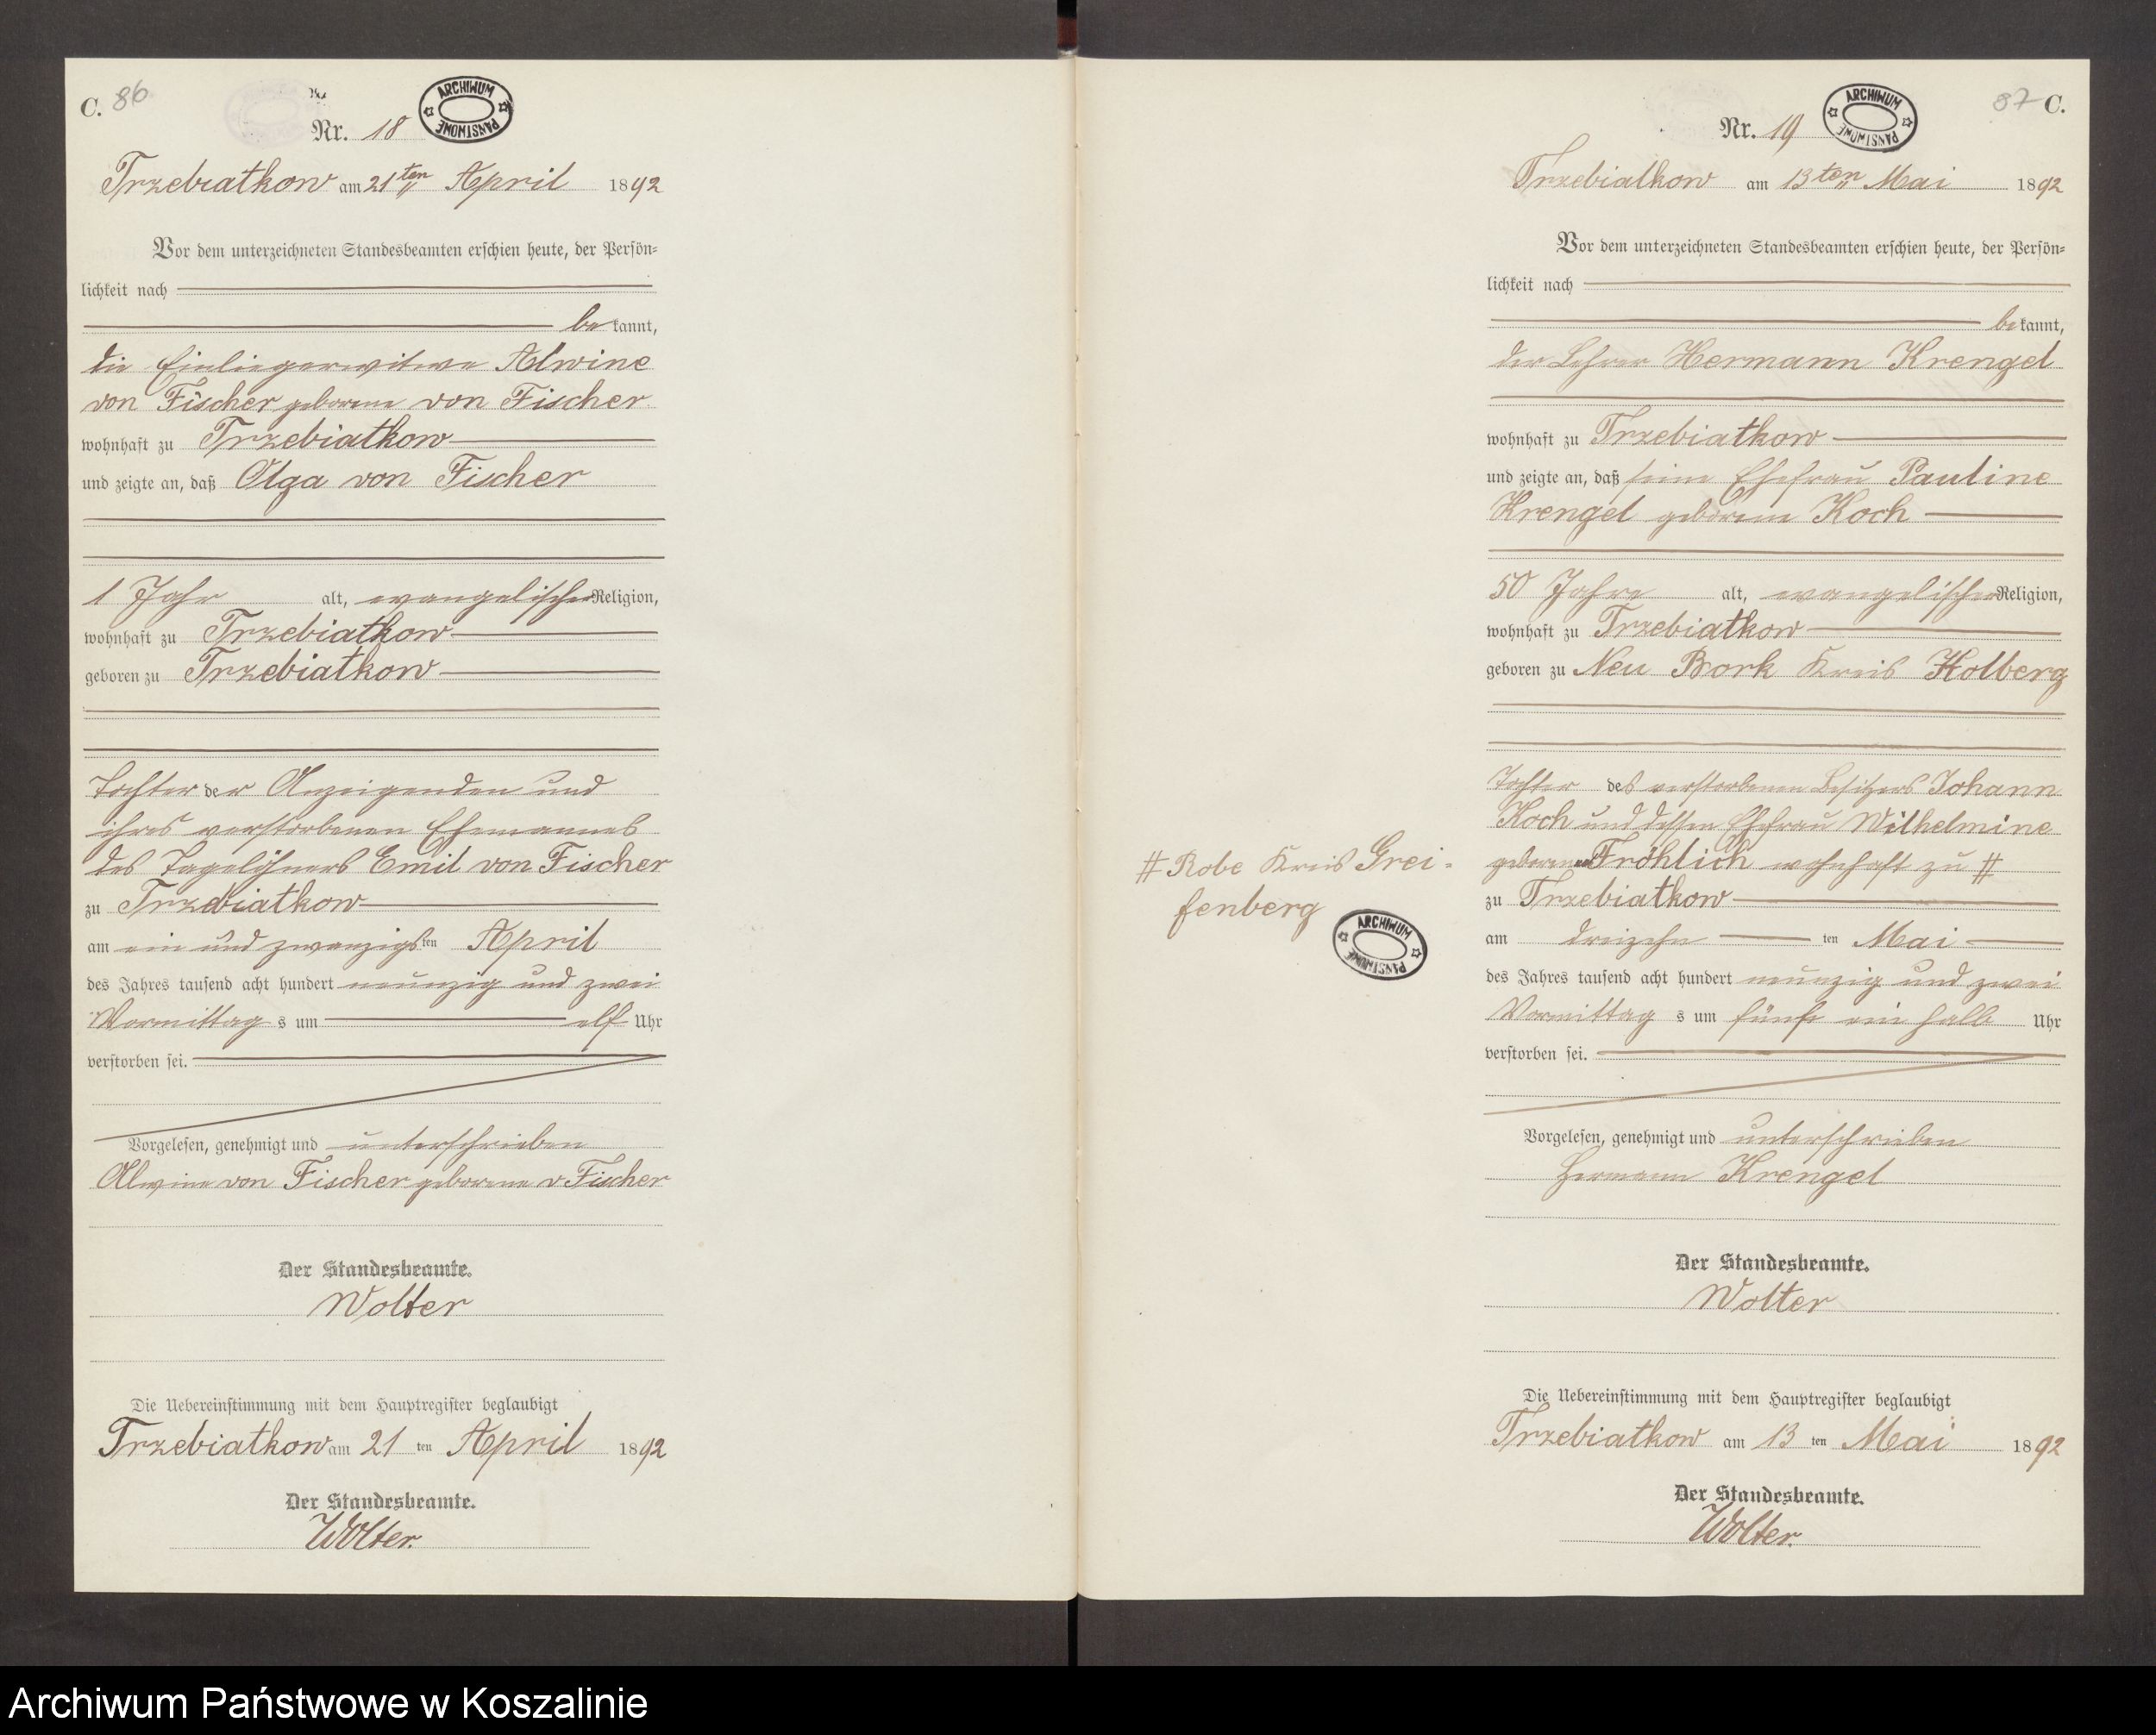 C. 86
Nr. 18
ARCHIWUM PAŃSTWOWE
Trzebiatkow am 21ten April 1892
Vor dem unterzeichneten Standesbeamten erschien heute, der Persön-
lichkeit nach
bekannt,
die Einliegerwitwe Alwine
von Fischer geborene von Fischer
wohnhaft zu Trzebiatkow
und zeigte an, daß Olga von Fischer
1 Jahr alt, evangelischer Religion,
wohnhaft zu Trzebiatkow
geboren zu Trzebiatkow
Tochter der Anzeigenden und
ihres verstorbenen Ehemannes
des Tagelöhners Emil von Fischer
zu Trzebiatkow
am ein und zwanzigsten April
des Jahres tausend acht hundert neunzig und zwei
Vormittags um elf Uhr
verstorben sei.
Vorgelesen, genehmigt und unterschrieben
Alwine von Fischer geborene v Fischer
Der Standesbeamte.
Wolter
Die Uebereinstimmung mit dem Hauptregister beglaubigt
Trzebiatkow am 21ten April 1892
Der Standesbeamte.
Wolter.
87 C.
Nr. 19
ARCHIWUM PAŃSTWOWE
Trzebiatkow am 13ten Mai 1892
Vor dem unterzeichneten Standesbeamten erschien heute, der Persön-
lichkeit nach
bekannt,
der Lehrer Hermann Krengel
wohnhaft zu Trzebiatkow
und zeigte an, daß seine Ehefrau Pauline
Krengel geborene Koch
50 Jahre alt, evangelischer Religion,
wohnhaft zu Trzebiatkow
geboren zu Neu Bork Kreis Kolberg
Tochter des verstorbenen Besitzers Johann
Koch und dessen Ehefrau Wilhelmine
geborenen Fröhlich wohnhaft zu #
# Robe Kreis Grei-
fenberg
ARCHIWUM PAŃSTWOWE
zu Trzebiatkow
am dreizehn ten Mai
des Jahres tausend acht hundert neunzig und zwei
Vormittags um fünf ein halb Uhr
verstorben sei.
Vorgelesen, genehmigt und unterschrieben
Hermann Krengel
Der Standesbeamte.
Wolter
Die Uebereinstimmung mit dem Hauptregister beglaubigt
Trzebiatkow am 13ten Mai 1892
Der Standesbeamte.
Wolter.
Archiwum Państwowe w Koszalinie